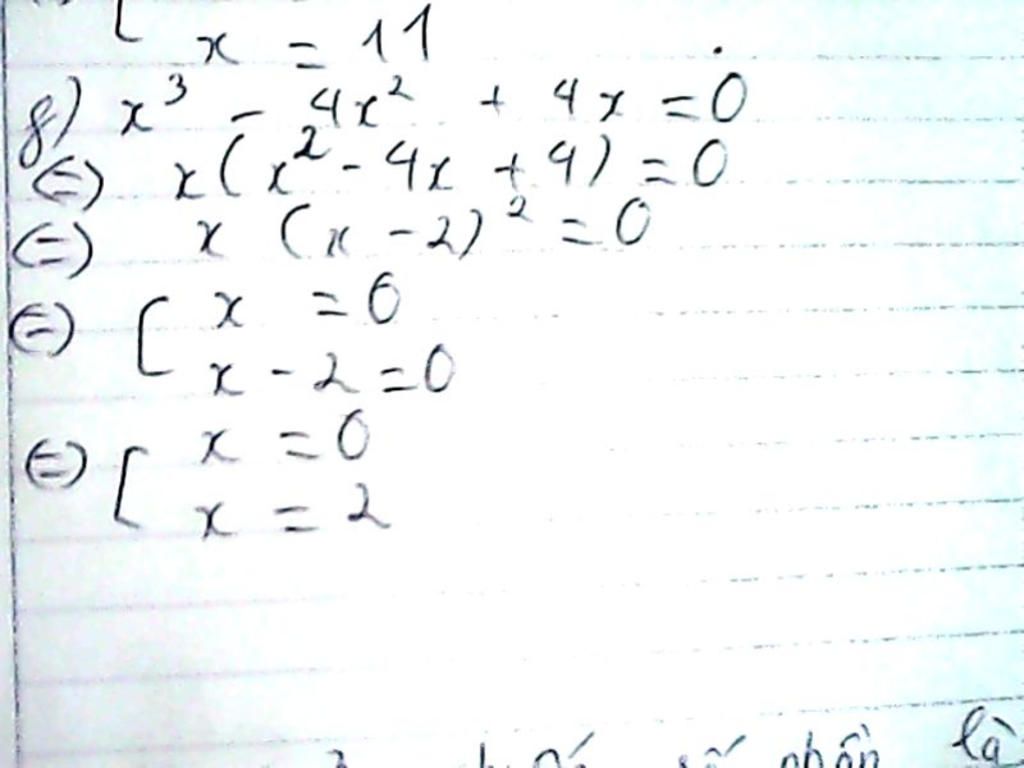 [ x = 11
g) x³ - 4x² + 4x = 0
(=) x(x² - 4x + 4) = 0
(=) x (x - 2)² = 0
(=) [ x = 0
x - 2 = 0
(=) [ x = 0
x = 2
số phần là